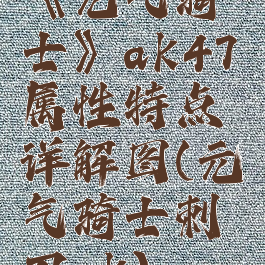 《元气骑
士》ak47
属性特点
详解图(元
气骑士刺